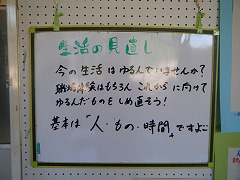 生活の見直し
今の生活はゆるんでいませんか?
職場体験はもちろん これからに向けて
ゆるんだものをしめ直そう!
基本は「人・もの・時間」ですよ